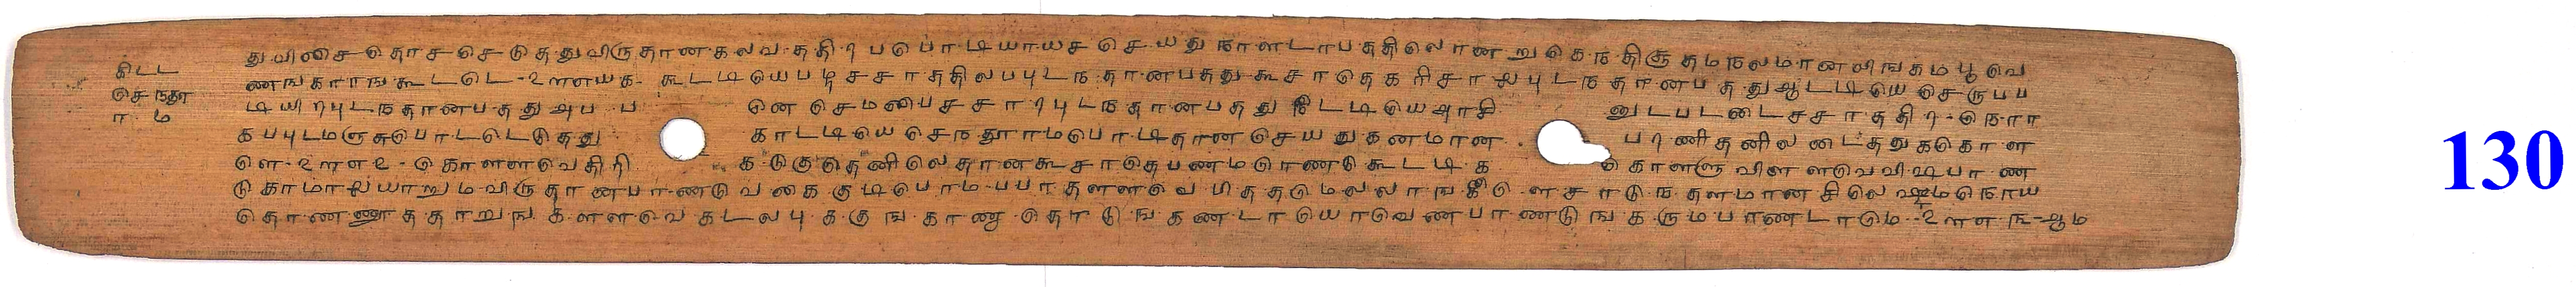 கிட்ட
செநதூ
ரம
துவிசை தொசசெடுதது விருதாணகலவததிர பபொடியாயச செயது நாளடாபததிலொணறுகெநதிருதமநலமானலிஙகமபூவெ
ணஙகாரஙகூடடெ-உளளயக கூடடியெபடிசசாததிலபபுடநதானபதது கூசாதெகரிசாலபுடநதாணபதது ஆடடியெசெருபப
டியிரபுடநதானபதது அப ப னெசெமபைசசாரபுடநதானபதது நீடடியெஅரசி னுடபடடைசசாததிர-நெரா
கபபுடமஞசுபொடடெடுதது காடடியெசெநதூரமபொடிதானசெயதுகனமான பரணிதனிலடைததுககொள
ளெ-உளஉ-கொளளவெதிரி கடுகுதெனிலெதானகூசாதெபணமொணடுகூடடிக கொளளுவிளளவெவிஷபாண
டுகாமாலயாறுமவிருதாணபாணடுவகைகுடிபொமபபாதளளவெபிததடுமலலாஙகீடெளசாடுநதளமானசிலெஷமநொய
தொணணூததாறுஙகளளவெகடலபுககுஙகாணுதொடுஙகணடாயொவெணபாணடுஙகருமபாணடாமெ-உளள ஙு-ஆம
130